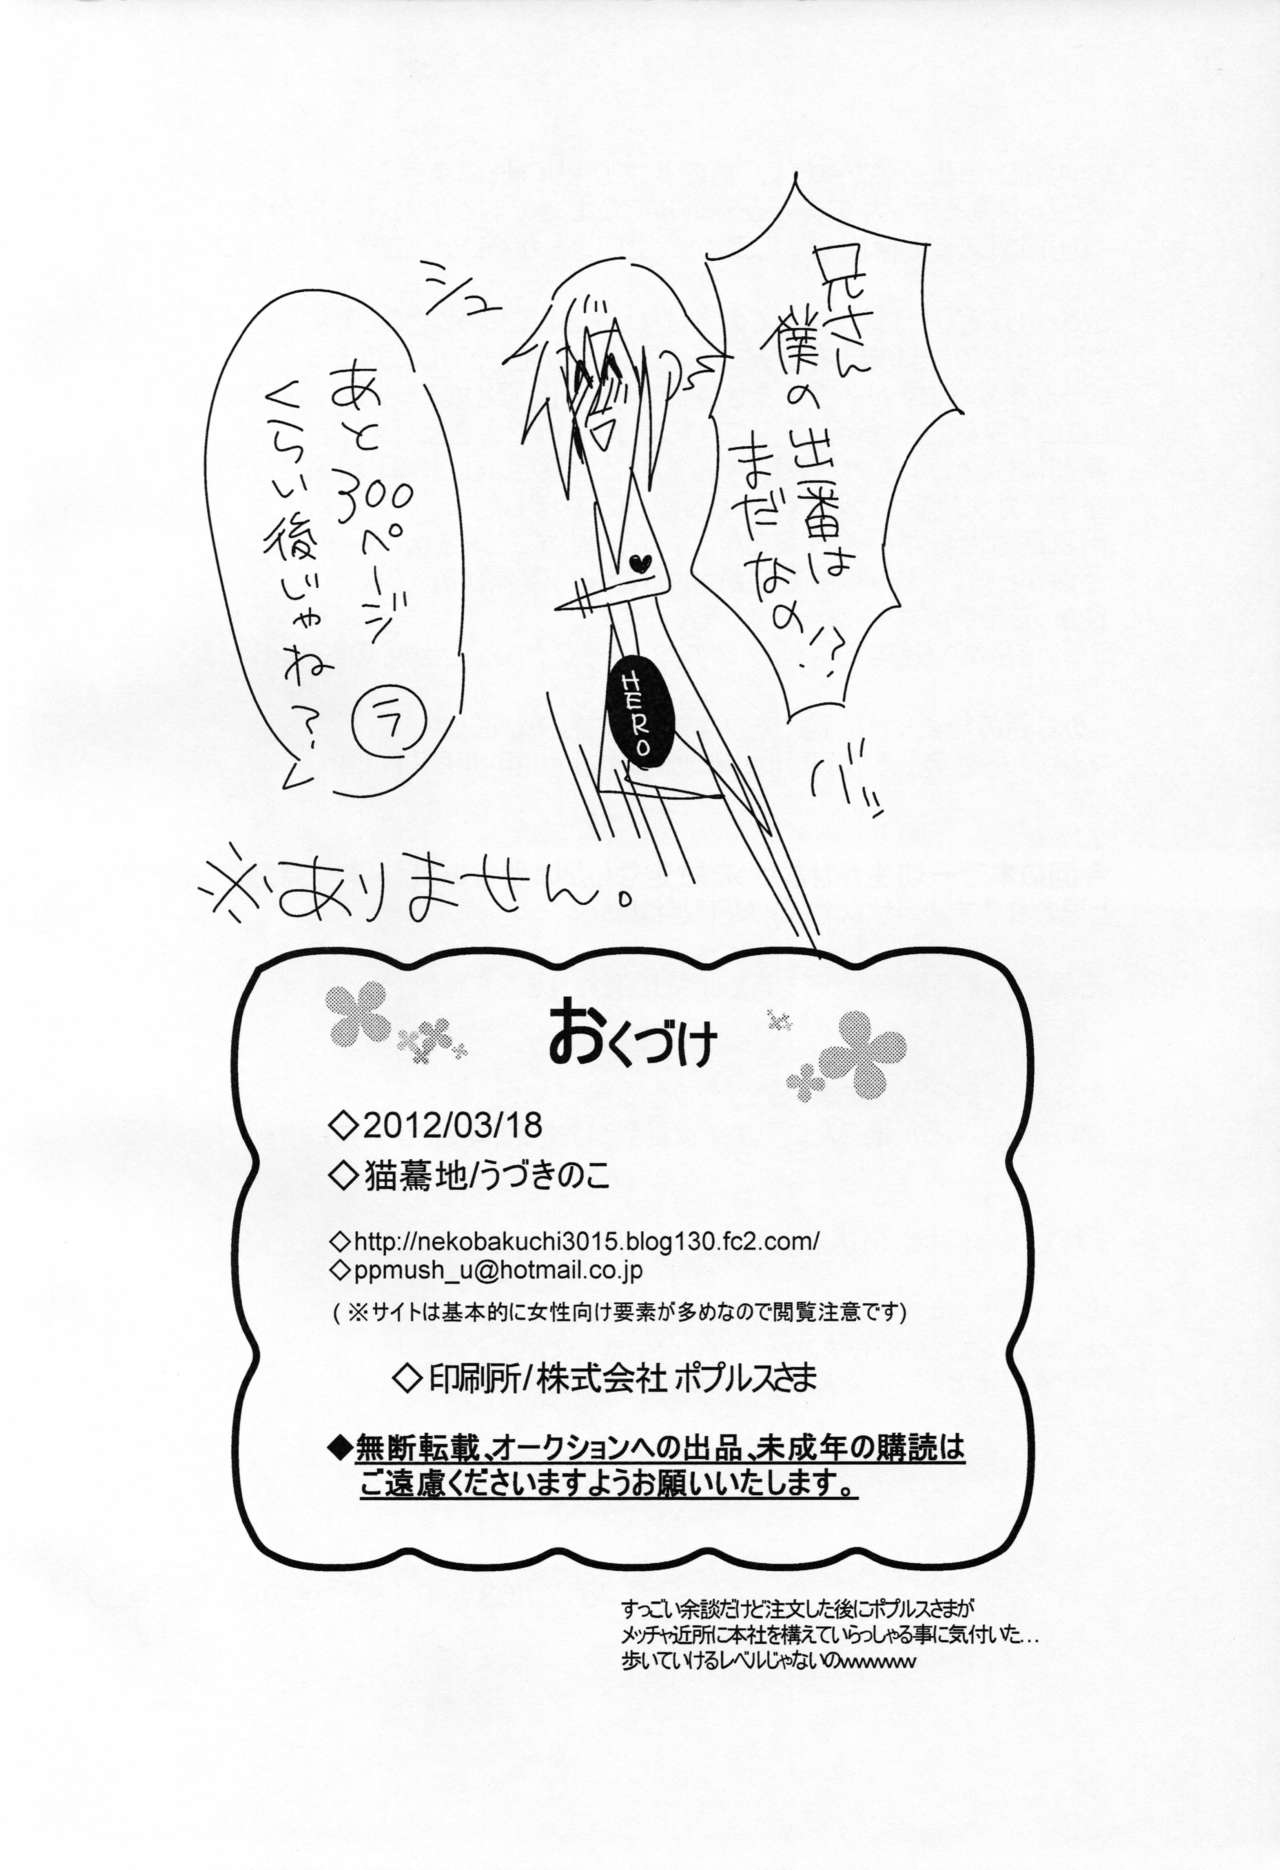 兄さん
僕の出番は
まだなの!?
シュ
あと300ページ
くらい後じゃね?
ラ
HERO
バッ
※ありません。
おくづけ
◇2012/03/18
◇猫驀地/うづきのこ
◇http://nekobakuchi3015.blog130.fc2.com/
◇ppmush_u@hotmail.co.jp
(※サイトは基本的に女性向け要素が多めなので閲覧注意です)
◇印刷所/株式会社 ポプルスさま
◆無断転載、オークションへの出品、未成年の購読は
ご遠慮くださいますようお願いいたします。
すっごい余談だけど注文した後にポプルスさまが
メッチャ近所に本社を構えていらっしゃる事に気付いた…
歩いていけるレベルじゃないのwwwwww